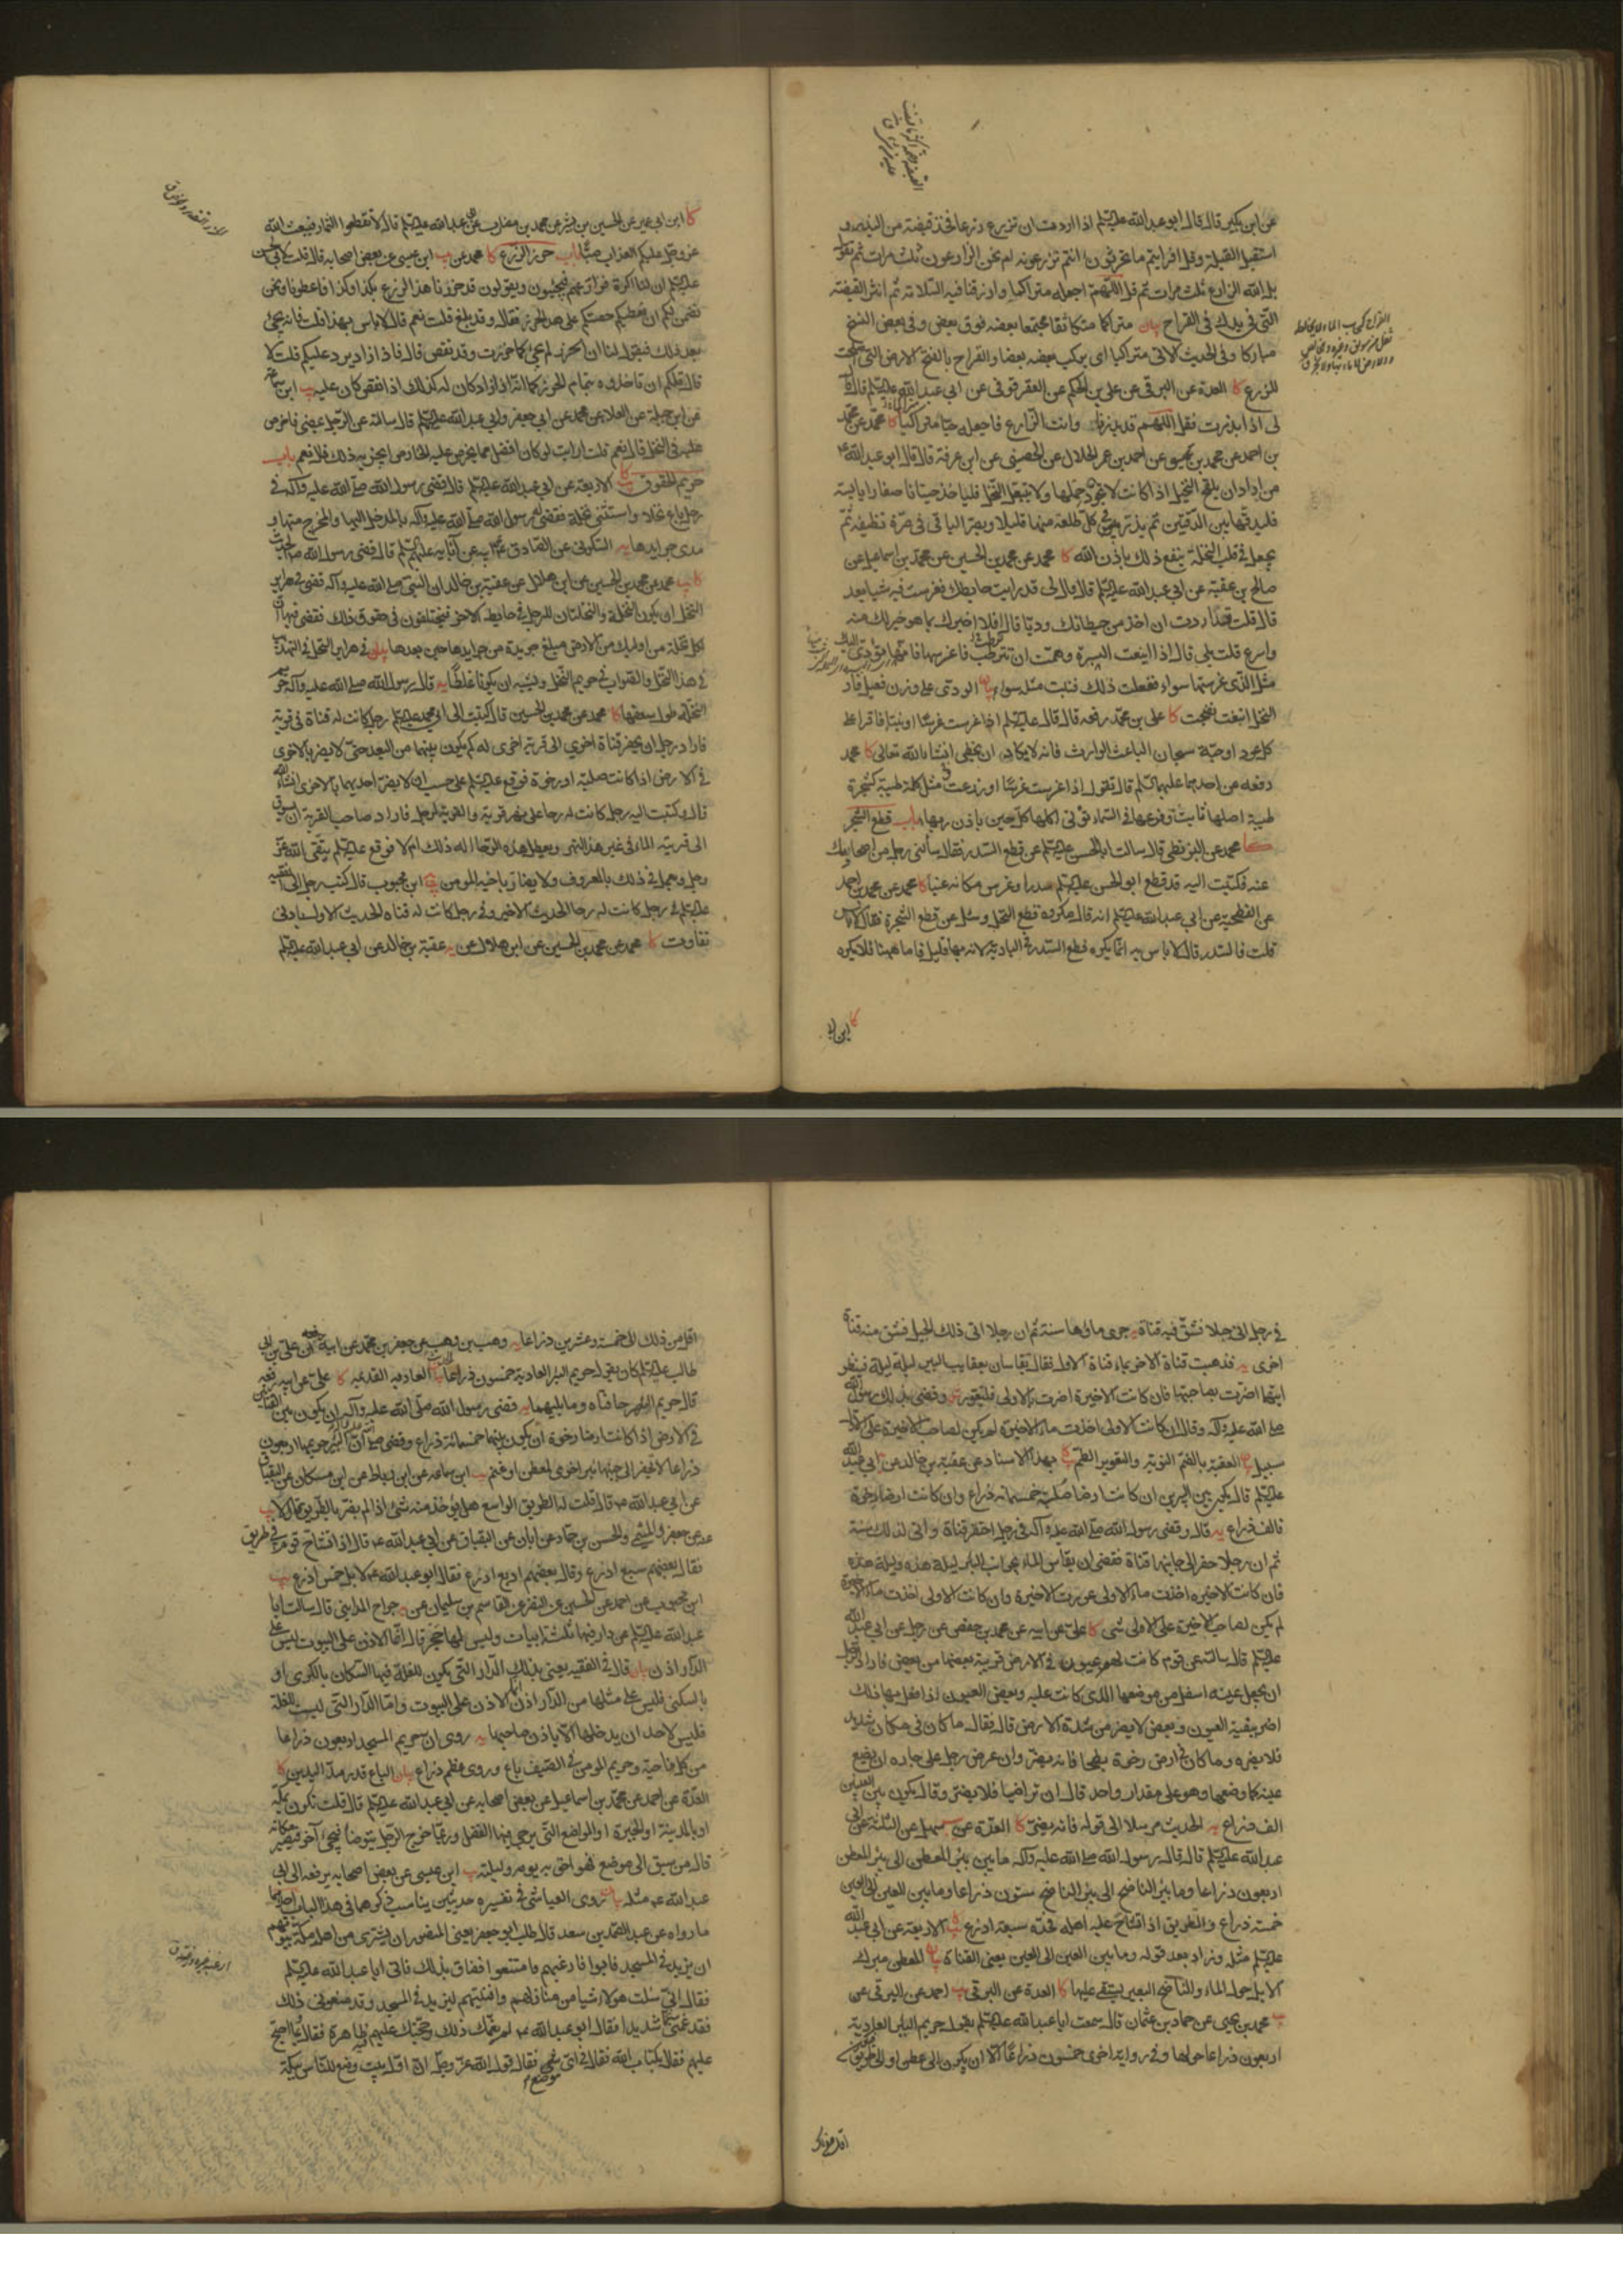 عن ابن بكير قال قال ابو عبدالله عليه السلم اذا اردت ان تزرع زرعا فخذ قبضة من البذر و
استقبل القبلة وقل افرايتم ما تحرثون ءانتم تزرعونه ام نحن الزارعون ثلث مرات ثم تقول
بل الله الزارع ثلث مرات ثم قل اللهم اجعله متراكما وارزقنا فيه السلامة ثم انثر القبضة
التى فى يدك فى القراح بيان متراكما متكاثفا مجتمعا بعضه فوق بعض وفى بعض النسخ
مباركا وفى الحديث الاتى متراكبا اى يركب بعضه بعضا والقراح بالفتح الارض التى
للزرع كا العدة عن البرقى عن على بن الحكم عن العقرقوفى عن ابى عبدالله عليه السلم قال قال
لى اذا بذرت فقل اللهم قد بذرنا وانت الزارع فاجعله حبا متراكبا كا محمد عن محمد
بن احمد عن محمد بن عن احمد بن عمر الحلال عن الحضينى عن ابن عرفة قال قال ابو عبدالله ع
من اراد ان يلقح النخيل اذا كانت لا يجود حملها ولا يتبعل النخل فلياخذ حيتانا صغارا يابسة
فليدقها بين الدقتين ثم يذر فى كل طلعة منها قليلا ويصر الباقى فى صرة نظيفة ثم
يجعل فى قلب النخلة ينفع ذلك باذن الله كا محمد عن محمد بن الحسين عن محمد بن اسماعيل عن
صالح بن عقبة عن ابى عبدالله عليه السلم قال قال لى قد رايت حايطك فغرست فيه شيا بعد
قال قلت قد اردت ان اخذ من حيطانك وديا قال افلا اخبرك بما هو خير لك منه
واسرع قلت بلى قال اذا اينعت البسرة وهمت ان ترطب فاغرسها فانها تؤدى اليك
مثل الذى غرستها سواء ففعلت ذلك فنبتت مثله سواء بيان الودى على وزن فعيل فاذ
كا على بن محمد رفعه قال قال عليه السلم اذا غرست غرسا او نبتا فاقرا على
كل عود او حبة سبحان الباعث الوارث فانه لا يكاد ان يخطى انشاء الله تعالى كا محمد
رفعه عن احدهما عليهما السلم قال تقول اذا غرست غرسا او زرعت مثل كلمة طيبة كشجرة
طيبة اصلها ثابت وفرعها فى السماء تؤتى اكلها كل حين باذن ربها باب قطع الشجر
كا محمد عن البزنطى قال سالت ابا الحسن عليه السلم عن قطع السدر فقال سالنى رجل من اصحابك
عنه فكتبت اليه قد قطع ابو الحسن عليه السلم سدرا وغرس مكانه عنبا كا محمد عن محمد بن احمد
عن الفطحية عن ابى عبدالله عليه السلم انه قال مكروه قطع النخل وسئل عن قطع الشجرة فقال لا باس
قلت فالسدر قال لا باس به انما يكره قطع السدر فى البادية لانه بها قليل فاما ههنا فلا يكره
كا ابن ابى
كا ابن ابى عمير عن الحسين بن بشير عن محمد بن مضارب عن ابى عبدالله عليه السلم قال لا تقطعوا الثمار فيبعث الله
عز وجل عليكم العذاب صبا باب حرز الزرع كا محمد عن يب ابن عيسى عن بعض اصحابه قال قلت لابى الحسن
عليه السلم ان لنا اكرة فنزارعهم فيجيئون ويقولون قد حزرنا هذا الزرع بكذا وكذا فاعطوناه ونحن
نضمن لكم ان نعطيكم حصتكم على هذا الحزر فقال وقد بلغ قلت نعم قال لا باس بهذا قلت فانه يجئ
بعد ذلك فيقول لنا ان الحزر لم يجئ كما حزرت وقد نقص قال فاذا زاد يرد عليكم قلت لا
قال فلكم ان تاخذوه بتمام الحزر كما انه اذا زاد كان له كذلك اذا نقص كان عليه يب ابن سماعة
عن ابن جبلة عن العلاء عن محمد عن ابى جعفر وابى عبدالله عليه السلم قال سالته عن الرجل يمضى ماخرص
عليه فى النخل قال نعم قلت ارايت لو كان افضل مما يخرص عليه الخارص ايجزيه ذلك قال نعم باب
حريم الحقوق كا الاربعة عن ابى عبدالله عليه السلم قال قضى رسول الله صلى الله عليه وآله فى
رجل باع نخلا واستثنى نخلة فقضى له رسول الله صلى الله عليه وآله بالمدخل اليها والمخرج منها و
مدى جرايدها يه السكونى عن الصادق عن ابيه عن آبائه عليهم السلم قال قضى رسول الله ص الحديث
كا يب محمد عن محمد بن الحسين عن ابن هلال عن عقبة بن خالد ان النبى صلى الله عليه وآله قضى فى هراير
النخل ان يكون النخلة والنخلتان للرجل فى حايط الاخر فيختلفون فى حقوق ذلك فقضى فيها ان
لكل نخلة من اولئك من الارض مبلغ جريدة من جرايدها حين بعدها بيان فى هراير النخل فى التهذيب
فى هذا النخل والصواب فى حريم النخل ويشبه ان يكونا غلطا يه قال رسول الله صلى الله عليه وآله حريم
النخلة طول سعفها كا محمد عن محمد بن الحسين قال كتبت الى ابى محمد عليه السلم رجل كانت له قناة فى قرية
فاراد رجل ان يحفر قناة اخرى الى قرية اخرى له كم يكون بينهما من البعد حتى لا يضر بالاخرى
فى الارض اذا كانت صلبة او رخوة فوقع عليه السلم على حسب ان لا يضر احديهما بالاخرى انشاء الله
قال وكتبت اليه رجل كانت له رحا على نهر قرية والقرية لرجل فاراد صاحب القرية ان يسوق
الى قريته الماء فى غير هذا النهر ويعطل هذه الرحا اله ذلك ام لا فوقع عليه السلم يتقى الله عز
وجل ويعمل فى ذلك بالمعروف ولا يضار باخيه المومن يه ابن محبوب قال كتب رجل الى الفقيه
عليه السلم فى رجل كانت له رحا الحديث الاخير وفى رجل كانت له قناة الحديث الاول بادنى
تفاوت كا محمد عن محمد بن الحسين عن ابن هلال عن يه عقبة بن خالد عن ابى عبدالله عليه السلم
فى رجل اتى جبلا فشق فيه قناة يه جرى ماؤها سنة ثم ان رجلا اتى ذلك الجبل فشق منه قناة
اخرى يه فذهبت قناة الاخر بماء قناة الاول فقال يقاسان بعقايب البير ليلة ليلة فينظر
ايتها اضرت بصاحبتها فان كانت الاخيرة اضرت بالاولى فليتعور يه وقضى بذلك رسول الله
صلى الله عليه وآله وقال ان كانت الاولى اخذت ماء الاخيرة لم يكن لصاحب الاخيرة على الاول
سبيل بيان العقبة بالضم النوبة والتعوير الطم كا بهذا الاسناد عن عقبة بن خالد عن ابى عبدالله
عليه السلم قال يكون بين البيرين ان كانت ارضا صلبة خمسمائة ذراع وان كانت ارضا رخوة
فالف ذراع يه قال وقضى رسول الله صلى الله عليه وآله فى رجل احتفر قناة واتى لذلك سنة
ثم ان رجلا حفر الى جانبها قناة فقضى ان يقاس الماء بجوانب البئر ليلة هذه وليلة هذه
فان كانت الاخيرة اخذت ماء الاولى عورت الاخيرة وان كانت الاولى اخذت ماء الاخيرة
لم يكن لصاحب الاخيرة على الاولى شى كا على عن ابيه عن محمد بن حفص عن رجل عن ابى عبدالله
عليه السلم قال سالته عن قوم كانت لهم عيون فى الارض قريبة بعضها من بعض فاراد رجل
ان يجعل عينه اسفل من موضعها الذى كانت عليه وبعض العيون اذا فعل بها ذلك
اضر ببقية العيون وبعض لا يضر من شدة الارض قال فقال ما كان فى مكان شديد
فلا يضره وما كان فى ارض رخوة بطحا فانه يضر وان عرض رجل على جاره ان يضع
عينه كما وضعها وهو على مقدار واحد قال ان تراضيا فلا يضر وقال يكون بين العينين
الف ذراع يه الحديث مرسلا الى قوله فانه يضر كا العدة عن سهل عن الثلثة عن ابى
عبدالله عليه السلم قال قال رسول الله صلى الله عليه وآله ما بين بئر المعطن الى بئر المعطن
اربعون ذراعا وما بئر الناضح الى بئر الناضح ستون ذراعا وما بين العين الى العين
خمسة ذراع والطريق اذا تشاح عليه اهله فحده سبعة اذرع كا الاربعة عن ابى عبدالله
عليه السلم مثله وزاد بعد قوله وما بين العين الى العين يعنى القناة بيان المعطن مبرك
الابل حول الماء والناضح البعير يستقى عليها كا العدة عن البرقى يب احمد عن البرقى عن
محمد بن يحيى عن حماد بن عثمان قال سمعت ابا عبدالله عليه السلم يقول حريم البئر العادية
اربعون ذراعا حولها وفى رواية اخرى خمسون ذراعا الا ان يكون الى عطن او الى طريق
اقل من ذلك
اقل من ذلك الى خمسة وعشرين ذراعا يه وهب بن وهب عن جعفر بن محمد عن ابيه ان على بن ابى
طالب عليه السلم كان يقول حريم البئر العادية خمسون ذراعا بيان العادية القديمة كا على عن ابيه رفعه
قال حريم النهر حافتاه وما يليهما يه قضى رسول الله صلى الله عليه وآله ان يكون بين القناتين
فى الارض اذا كانت ارضا رخوة ان يكون بينهما خمسمائة ذراع وقضى فى البئر حريمها اربعون
ذراعا لا يحفر الى جنبها بئر اخرى لعطن او غنم يب ابن سماعة عن ابن رباط عن ابن مسكان عن البقباق
عن ابى عبدالله ع قال قلت له الطريق الواسع هل يؤخذ منه شئ اذا لم يضر بالطريق قال لا يب
عنه عن جعفر والميثمى والحسن بن حماد عن ابان عن البقباق عن ابى عبدالله ع قال اذا تشاح قوم فى طريق
فقال بعضهم سبع اذرع وقال بعضهم اربع اذرع فقال ابو عبدالله ع لا بل خمس اذرع يب
ابن محبوب عن احمد عن الحسين عن النضر عن القاسم بن سليمان عن يه جراح المداينى قال سالت ابا
عبدالله عليه السلم عن دار فيها ثلثة ابيات وليس لها حجر قال انما الاذن على البيوت ليس على
الدار اذن بيان قال فى الفقيه يعنى بذلك الدار التى يكون للغلة فيها السكان بالكرى او
بالسكنى فليس على مثلها من الدار اذن انما الاذن على البيوت واما الدار التى ليست للغلة
فليس لاحد ان يدخلها الا باذن صاحبها يه روى ان حريم المسجد اربعون ذراعا
من كل ناحية وحريم المومن فى الصيف باع وروى عظم ذراع بيان الباع قدر مد اليدين كا
العدة عن احمد عن محمد بن اسماعيل عن بعض اصحابه عن ابى عبدالله عليه السلم قال قلت نكون بمكة
او بالمدينة او الحيرة او المواضع التى يرجى فيها الفضل وربما خرج الرجل يتوضا فيجئ آخر فيصير مكانه
قال من سبق الى موضع فهو احق به يومه وليلته يب ابن عيسى عن بعض اصحابه يرفعه الى ابى
عبدالله ع مثله بيان روى العياشى فى تفسيره حديثين يناسب ذكرهما فى هذا الباب احدهما
ما رواه عن عبد الصمد بن سعد قال طلب ابو جعفر يعنى المنصور ان يشترى من اهل مكة بيوتهم
ان يزيد فى المسجد فابوا فارغبهم فامتنعوا فضاق بذلك فاتى ابا عبدالله عليه السلم
فقال انى سئلت هؤلاء شيا من منازلهم وافنيتهم لنزيد فى المسجد وقد منعونى ذلك
فقد غمنى غما شديدا فقال ابو عبدالله ع لم يغمك ذلك وحجتك عليهم ظاهرة فقال بما احتج
عليهم فقال بكتاب الله فقال فى اى موضع فقال قول الله عز وجل ان اول بيت وضع للناس ببكة